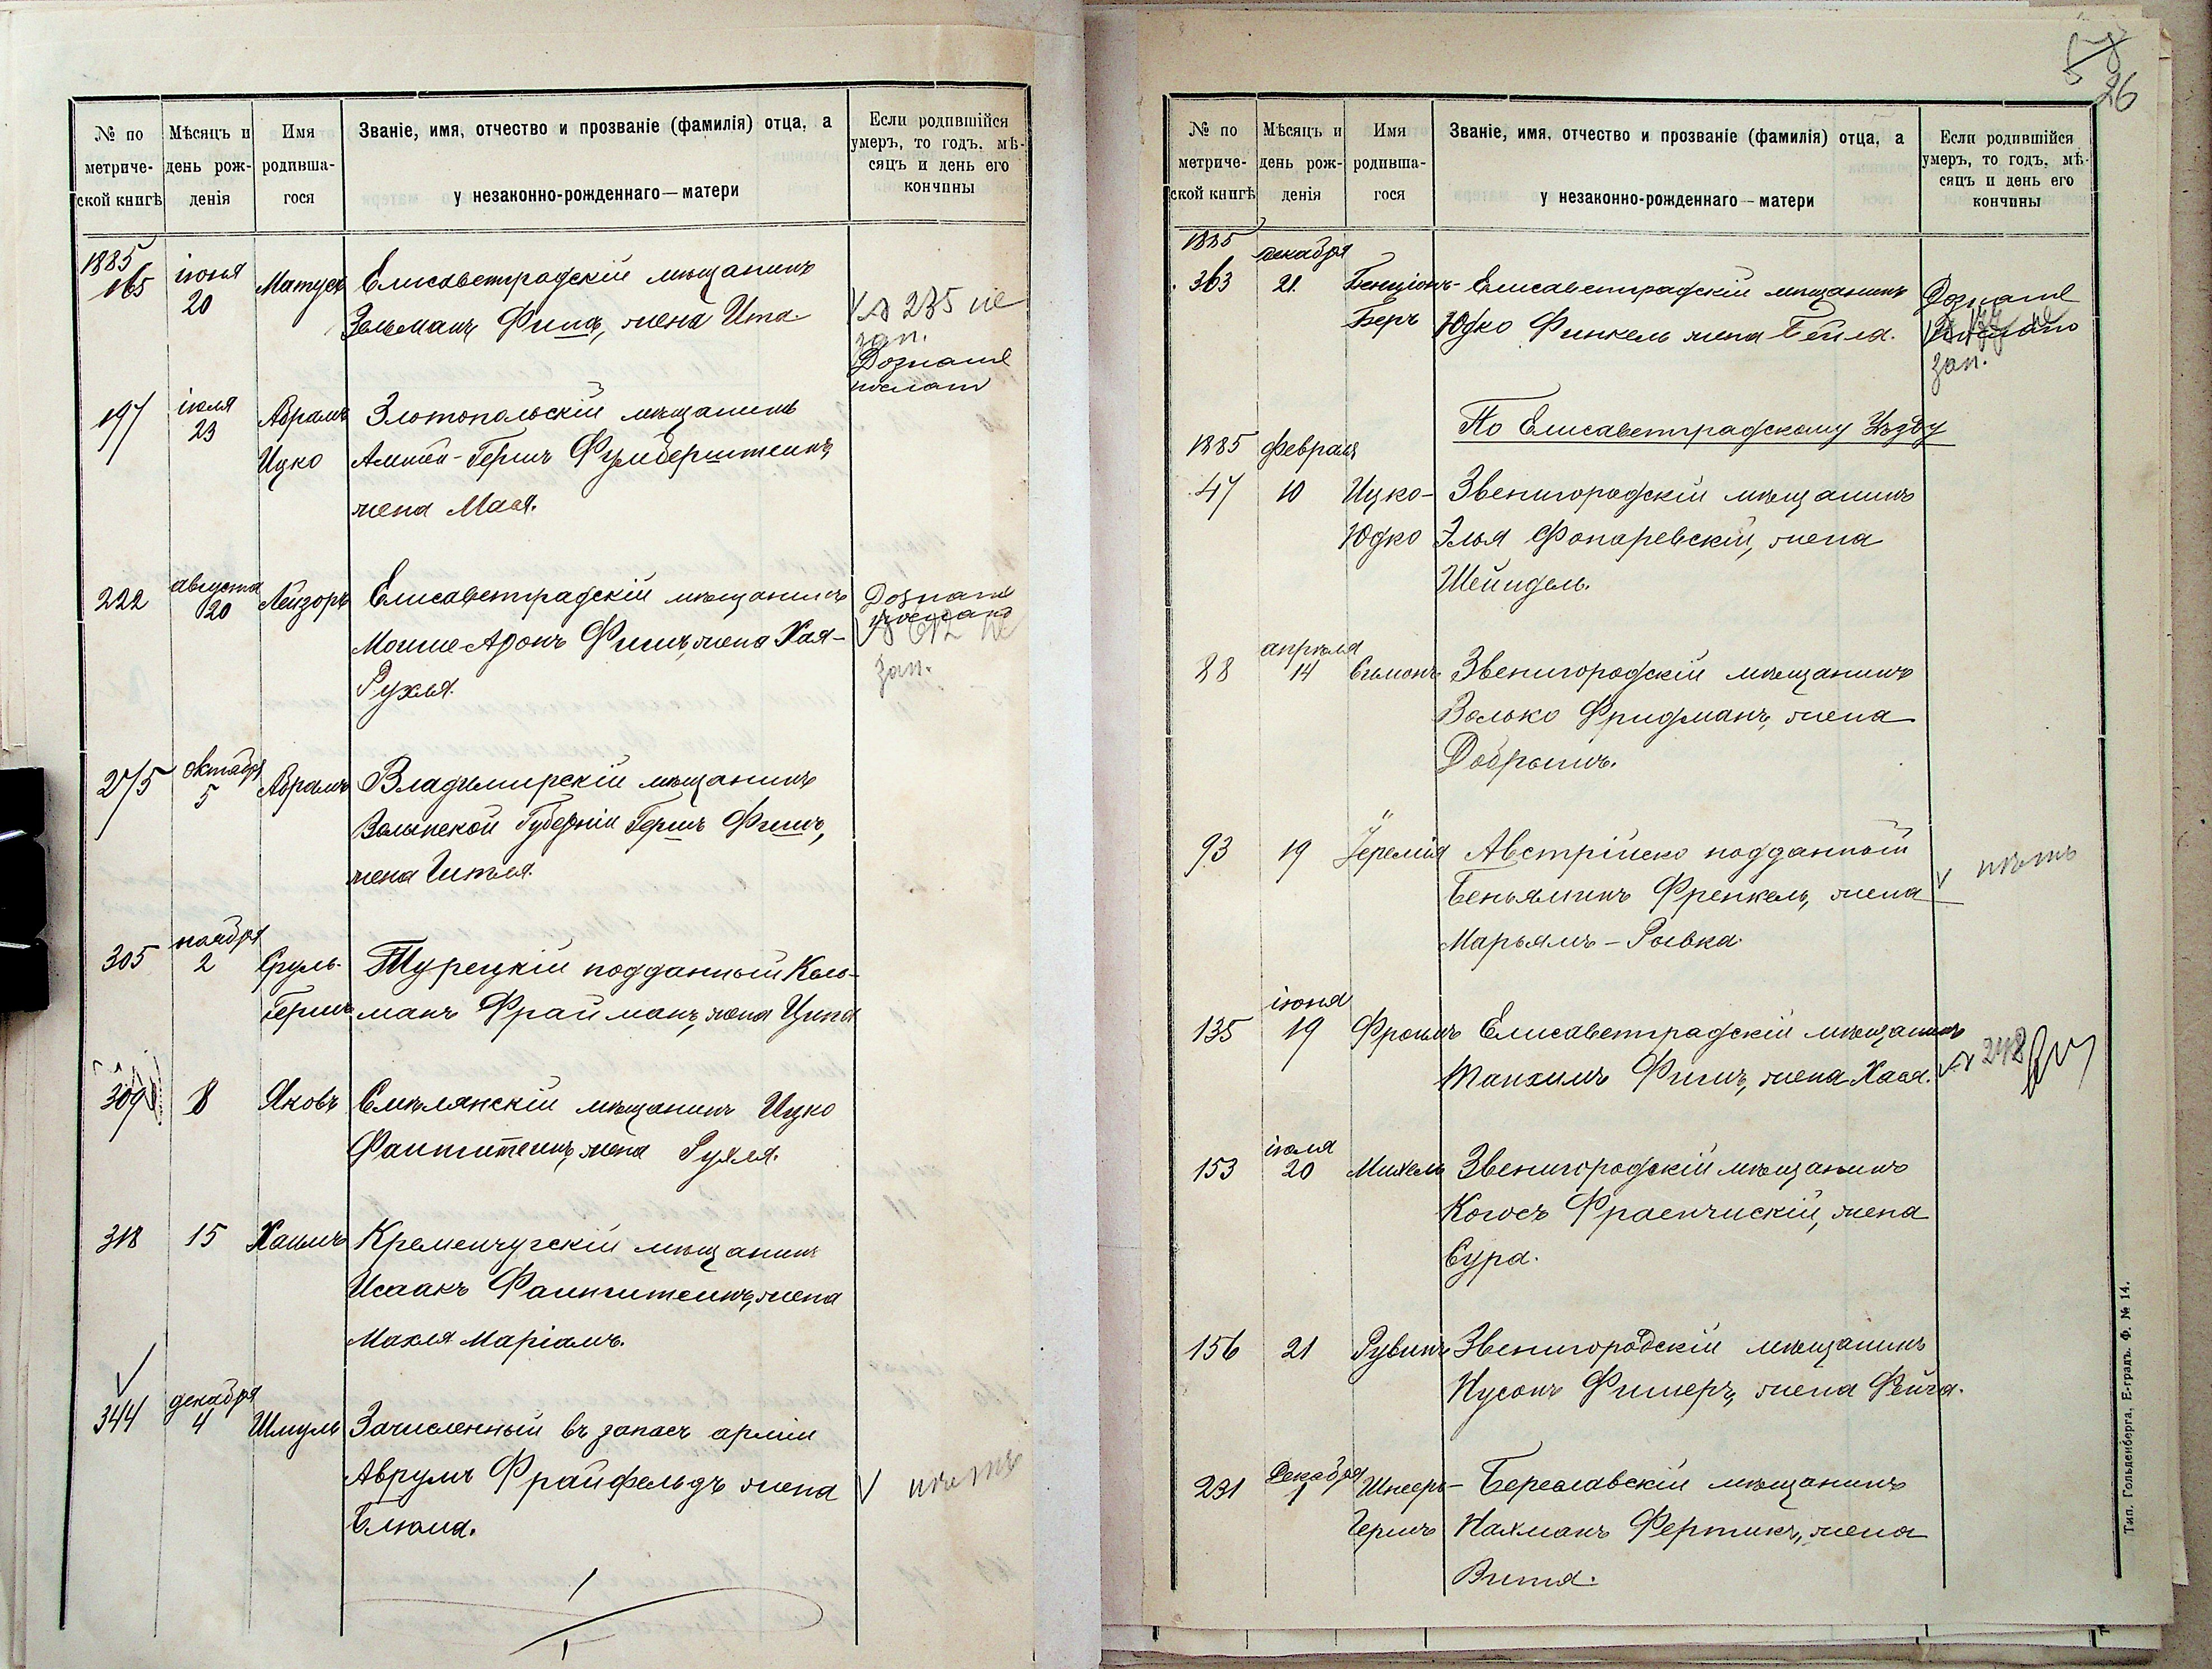 № по метриче-ской книгѣ
Мѣсяцъ и день рож-денія
Имя родивша-гося
Званіе, имя, отчество и прозваніе (фамилія) отца, а
у незаконно-рожденнаго — матери
Если родившійся умеръ, то годъ, мѣ-сяцъ и день его кончины
1885
165 іюня 20 Матусъ Елисаветградскій мѣщанинъ
Зельманъ Фишъ, жена Ита
№ 235 не
зап.
Дознаніе
послано
197 іюля 23 Абрамъ Злотопольскій мѣщанинъ
Ицко Гершъ Фумберштейнъ,
жена Мася.
222 августа 20 Лейзоръ Елисаветградскій мѣщанинъ
Мошие-Аронъ Фишъ, жена Хая-
Рухля.
Дознаніе
послано
зап.
275 октября 5 Абрамъ Владимирскій мѣщанинъ
Волынской Губерніи Гершъ Фишъ,
жена Гитля.
305 ноября 2 Сруль- Турецкій подданный Каль-
Гершъ манъ Фрайманъ, жена Ципа
309 8 Яковъ Смѣлянскій мѣщанинъ Ицко
Фаинштеинъ, жена Рухля.
318 15 Хаимъ Кременчугскій мѣщанинъ
Исаакъ Фаинштеинъ, жена
Махля Маріамъ.
344 декабря 4 Шмуль Зачисленный въ запасъ арміи
Аврумъ Фрайфельдъ жена
Блюма.
нѣтъ
26
№ по метриче-ской книгѣ
Мѣсяцъ и день рож-денія
Имя родивша-гося
Званіе, имя, отчество и прозваніе (фамилія) отца, а
у незаконно-рожденнаго — матери
Если родившійся умеръ, то годъ, мѣ-сяцъ и день его кончины
1885 декабря
363 21 Бенціонъ- Елисаветградскій мѣщанинъ
Беръ Юдко Финкель жена Бейла.
Дознаніе
послано
зап.
По Елисаветградскому Уѣзду
1885 февраля
47 10 Ицко- Звенигородскій мѣщанинъ
Юдко Элья Фонаревскій, жена
Шейндель.
88 апрѣля 14 Симонъ Звенигородскій мѣщанинъ
Волько Фридманъ, жена
Добрышъ.
93 19 Іеремія Австрійско подданный
Беньяминъ Френкель, жена
Марьямъ-Рывка.
нѣтъ
135 іюня 19 Фроимъ Елисаветградскій мѣщанинъ
Танхимъ Фишъ, жена Хася.
№ 248
153 іюля 20 Михель Звенигородскій мѣщанинъ
Когосъ Фраенчискій, жена
Сура.
156 21 Рувинъ Звенигородскій мѣщанинъ
Нусонъ Фишеръ, жена Фейга.
231 Декабря 1 Шнееръ- Береславскій мѣщанинъ
Гершъ Нахманъ Фертикъ, жена
Витя.
Тип. Гольденберга, Е-градъ. Ф. № 14.